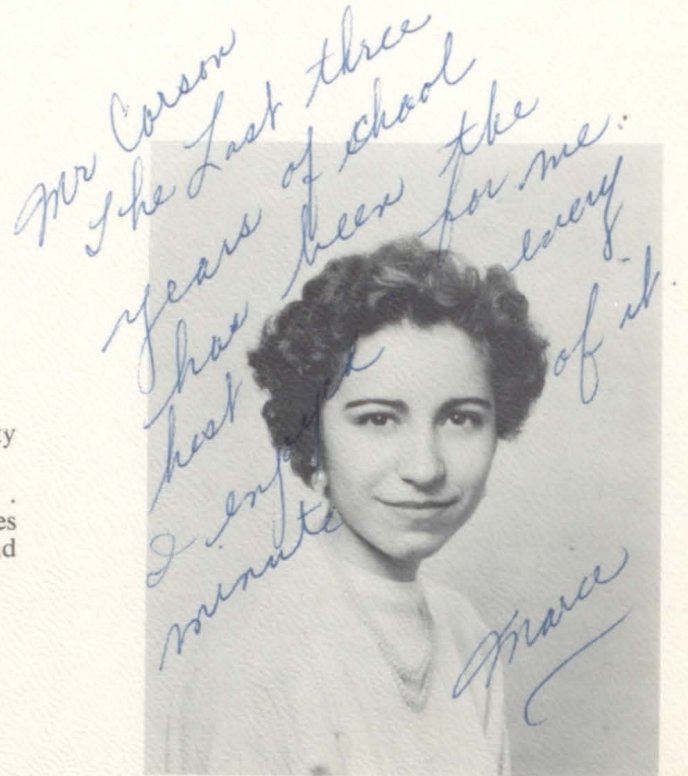 Mr Corson
The Last three
years of school
has been the
best for me.
I enjoyed every
minute of it.
Marce
ty
.
es
d